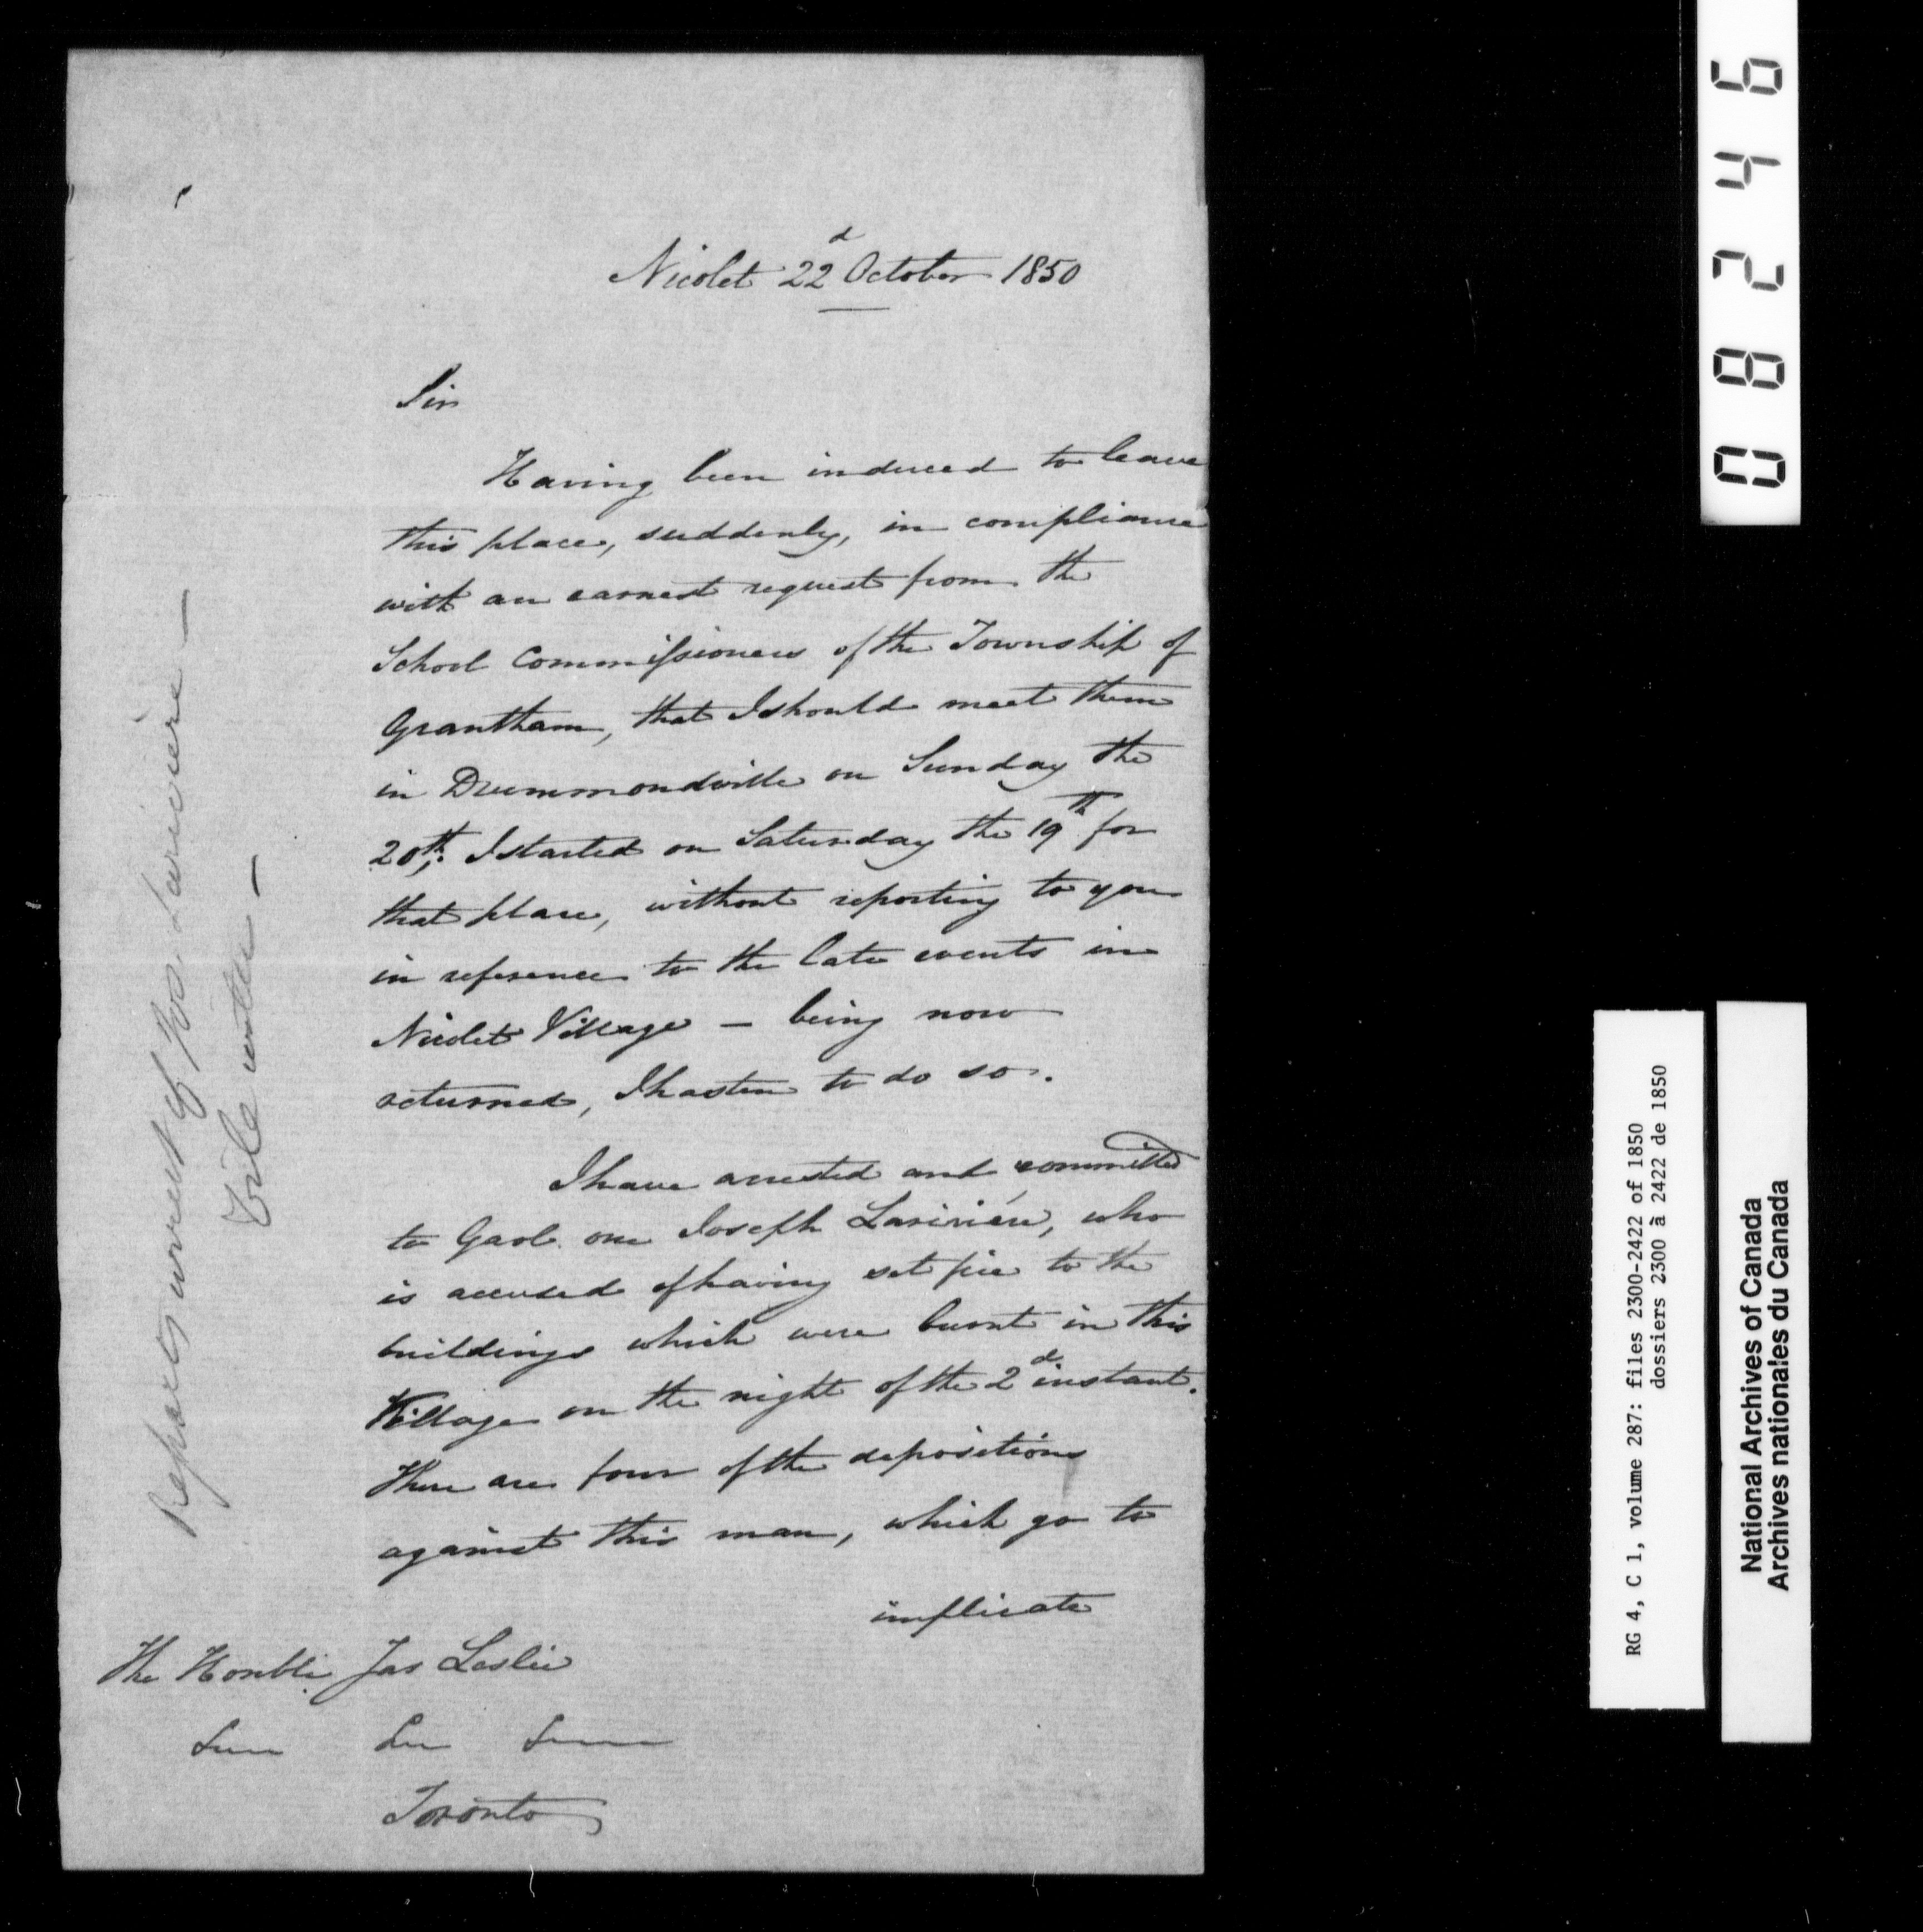 Nicolet 22d October 1850
Sir
Having been induced to leave
this place, suddenly, in compliance
with an earnest request from the
School Commissioners of the Township of
Grantham, that I should meet them
in Drummondville on Sunday the
20th, I started on Saturday the 19th for
that place, without reporting to you
in reference to the late events in
Nicolet Village — being now
returned, I hasten to do so.
I have arrested and committed
to Gaol one Joseph Lariviére, who
is accused of having set fire to the
buildings which were burnt in this
Village on the night of the 2d instant.
There are four of the depositions
against this man, which go to
implicate
The Honble Jas Leslie
Toronto
Reports arrest of Jos. Lariviere —
0 8 2 4 6
RG 4, C 1, volume 287: files 2300-2422 of 1850
dossiers 2300 à 2422 de 1850
National Archives of Canada
Archives nationales du Canada